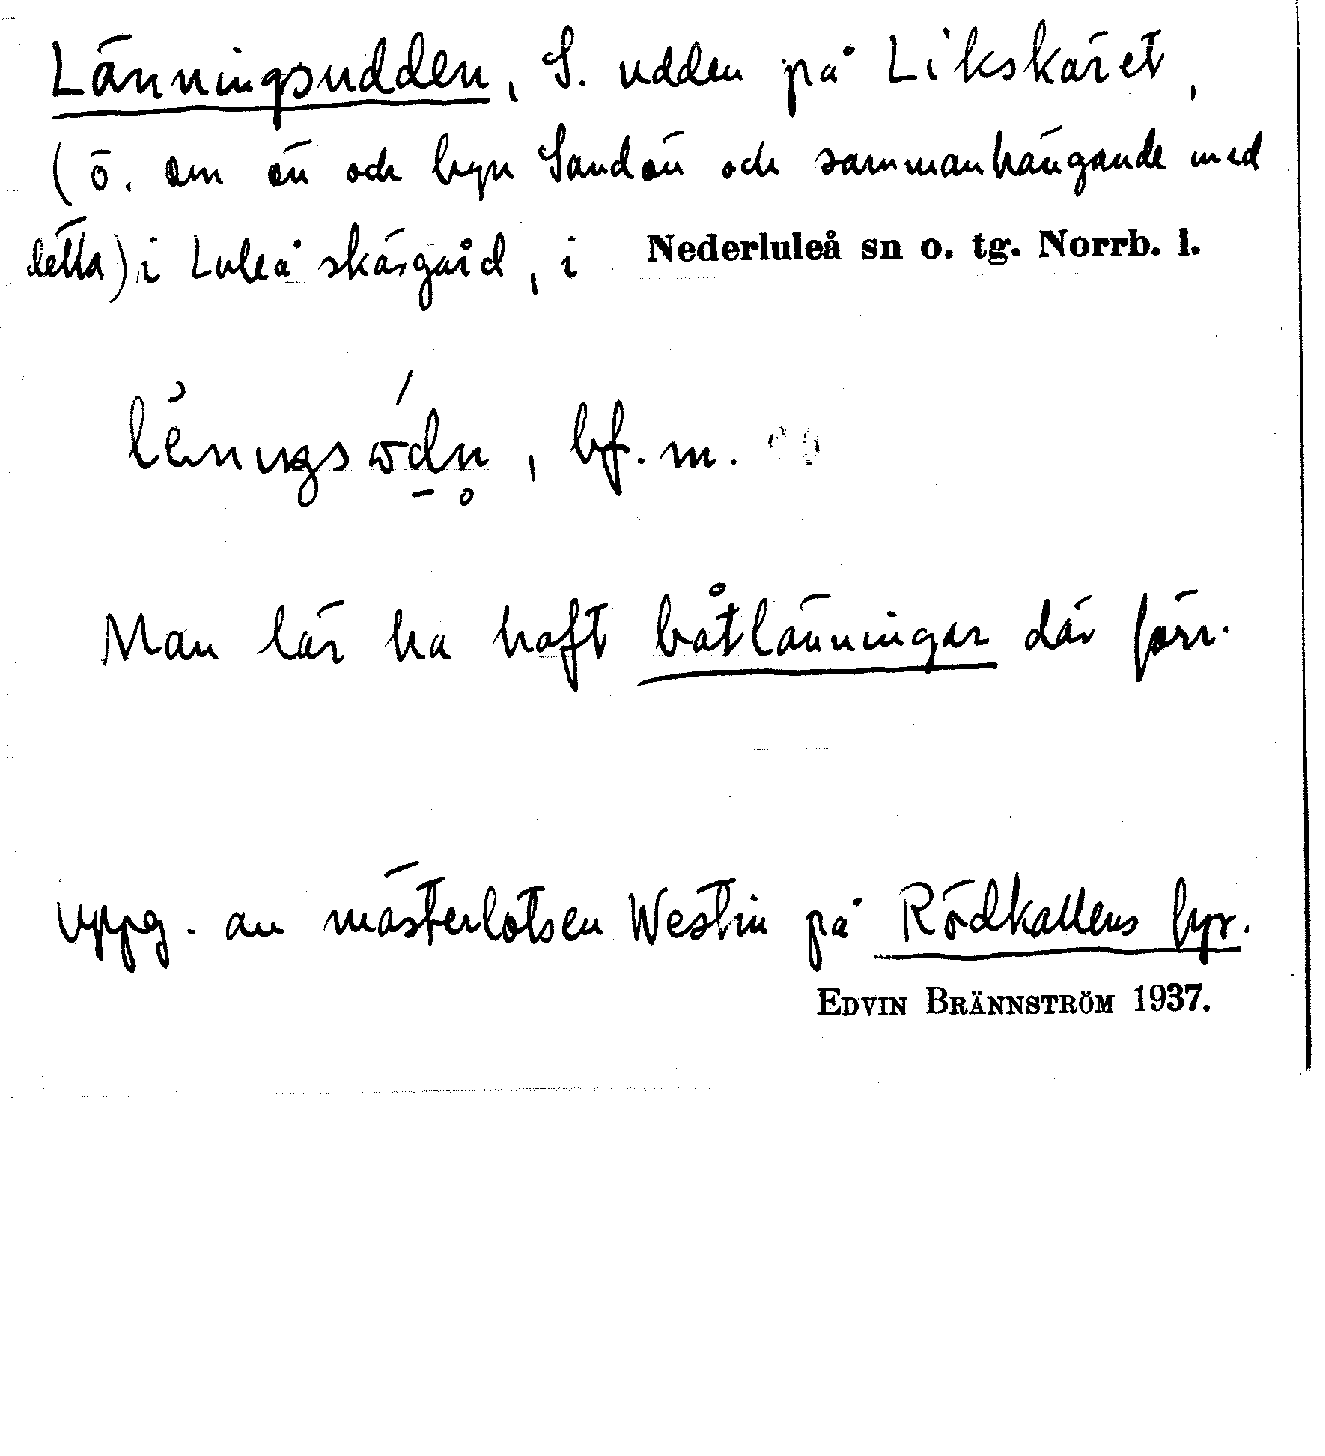 Länningsudden, S. udden på Likskäret,
(ö. om ön och byn Sandön och sammanhängande med
detta) i Luleå skärgård, i Nederluleå sn o. tg. Norrb. l.
, bf. m.
Man lär ha haft båtlänningar där förr.
Uppg. av mästerlotsen Westin på Rödkallens fyr.
EDVIN BRÄNNSTRÖM 1937.